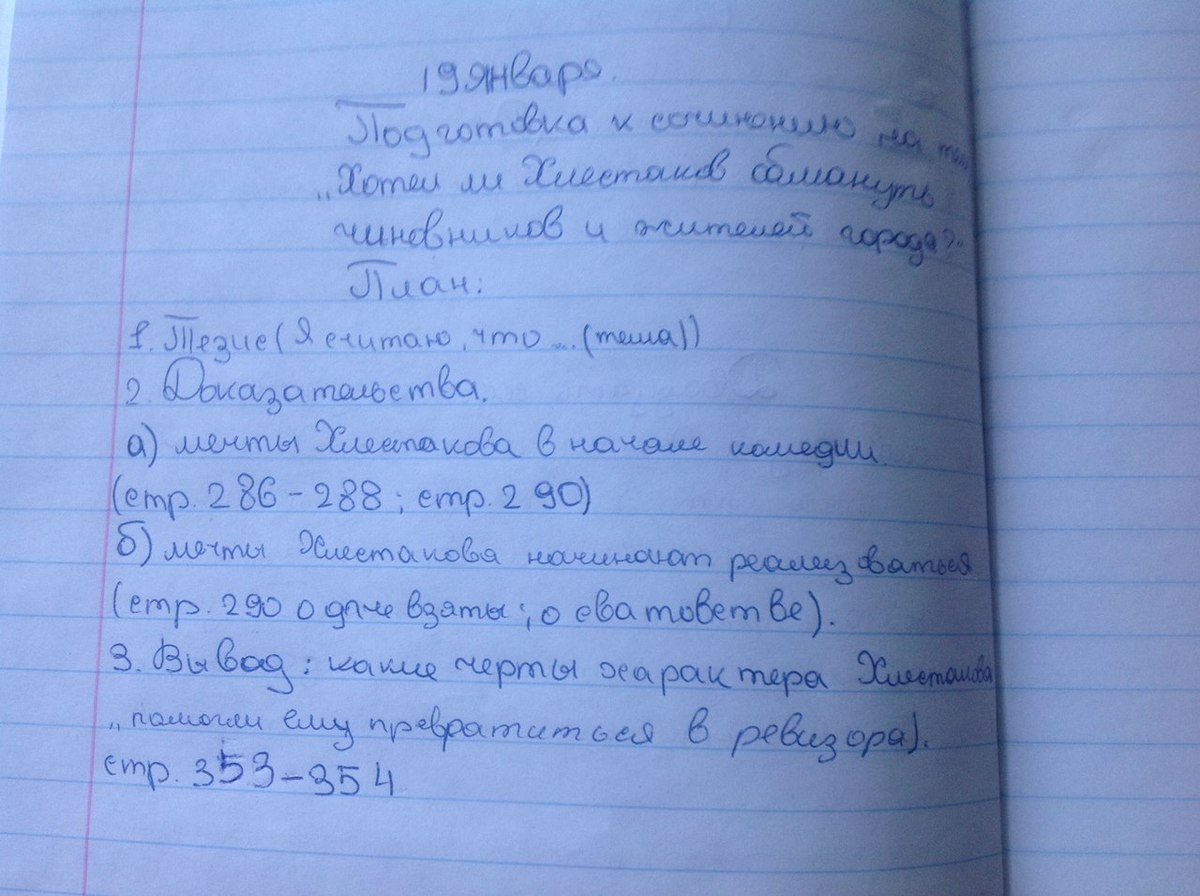 19 января.
Подготовка к сочинению на
„Хотел ли Хлестаков обмануть
чиновников и жителей города?"
План:
1. Тезис (Я считаю, что ... (тема))
2. Доказательства.
а) мечты Хлестакова в начале комедии.
(стр. 286 – 288 ; стр. 290)
б) мечты Хлестакова начинают реализоваться
(стр. 290 о взяты ; о сватовстве).
3. Вывод : какие черты характера Хлестакова
„помогли ему превратиться в ревизора).
стр. 353 – 354